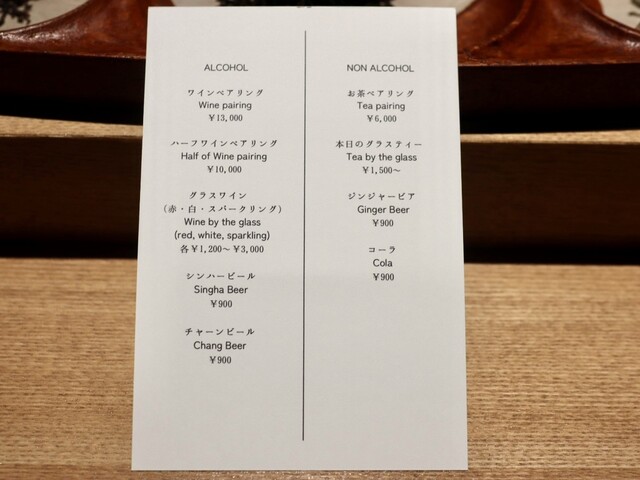 ALCOHOL
ワインペアリング
Wine pairing
￥13,000
ハーフワインペアリング
Half of Wine pairing
￥10,000
グラスワイン
（赤・白・スパークリング）
Wine by the glass
(red, white, sparkling)
各￥1,200～￥3,000
シンハービール
Singha Beer
￥900
チャーンビール
Chang Beer
￥900
NON ALCOHOL
お茶ペアリング
Tea pairing
￥6,000
本日のグラスティー
Tea by the glass
￥1,500～
ジンジャービア
Ginger Beer
￥900
コーラ
Cola
￥900